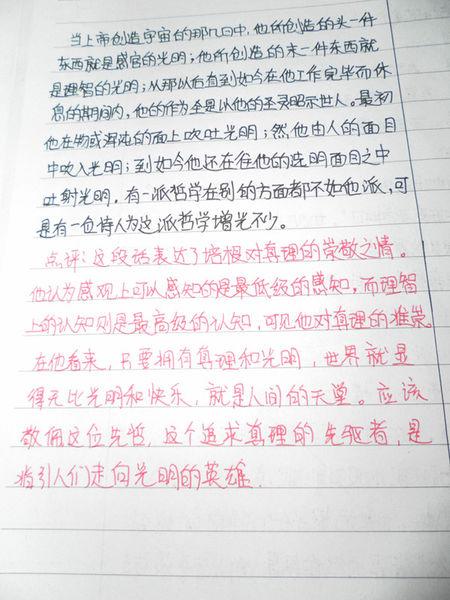 当上帝创造宇宙的那几日中,他所创造的头一件
东西就是感官的光明;他所创造的末一件东西就
是理智的光明;从那以后直到如今在他工作完毕而休
息的期间内,他的作为全是以他的圣灵昭示世人。最初
他在物或浑沌的面上吹吐光明;然他由人的面目
中吹入光明;到如今他还在往他的选民面目之中
吐射光明。有一派哲学在别的方面都不如他派,可
是有一位诗人为这派哲学增光不少。
点评:这段话表达了培根对真理的崇敬之情。
他认为感观上可以感知的是最低级的感知,而理智
上的认知则是最高级的认知,可见他对真理的推崇
在他看来,只要拥有真理和光明,世界就显
得无比光明和快乐,就是人间的天堂。应该
敬佩这位先哲,这个追求真理的先驱者,是
指引人们走向光明的英雄.